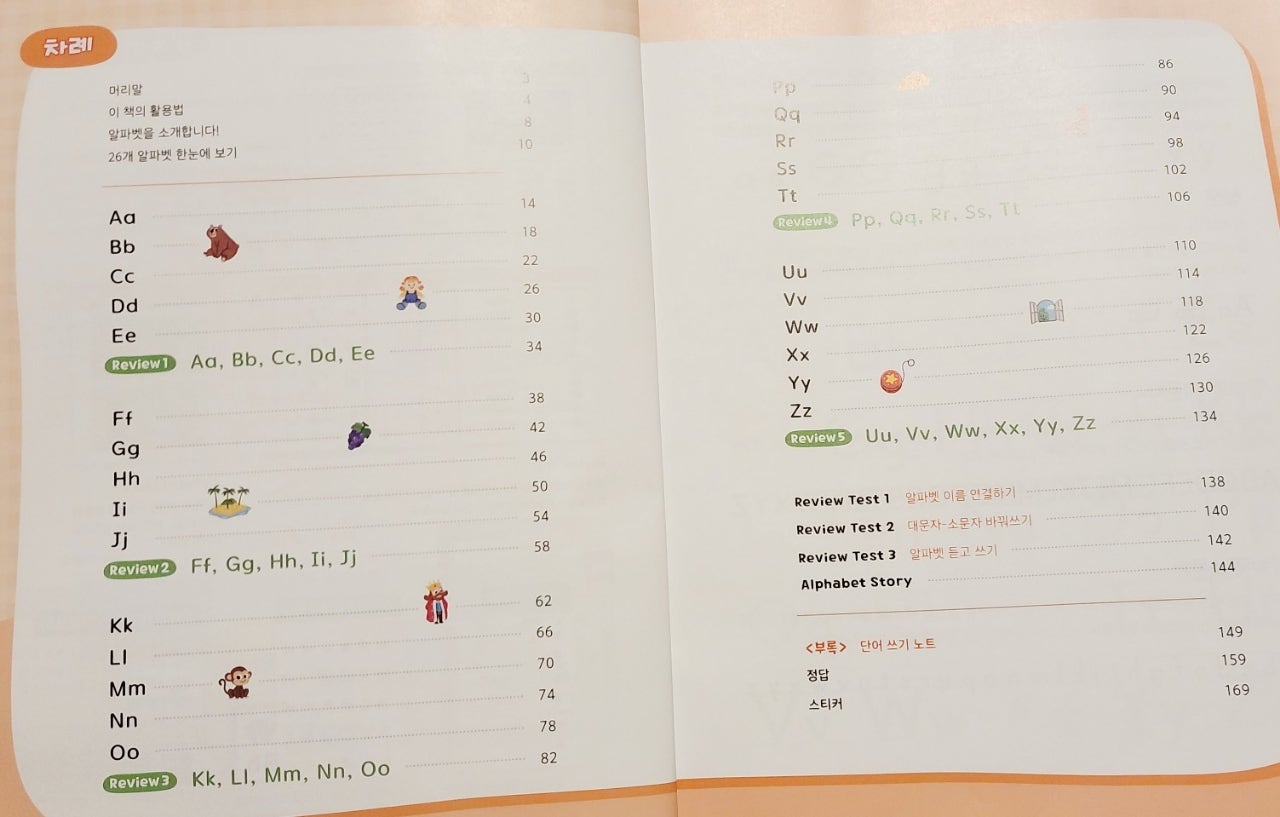 차례
머리말 3
이 책의 활용법 4
알파벳을 소개합니다! 8
26개 알파벳 한눈에 보기 10
Aa 14
Bb 18
Cc 22
Dd 26
Ee 30
Review 1 Aa, Bb, Cc, Dd, Ee 34
Ff 38
Gg 42
Hh 46
Ii 50
Jj 54
Review 2 Ff, Gg, Hh, Ii, Jj 58
Kk 62
Ll 66
Mm 70
Nn 74
Oo 78
Review 3 Kk, Ll, Mm, Nn, Oo 82
Pp 86
Qq 90
Rr 94
Ss 98
Tt 102
Review 4 Pp, Qq, Rr, Ss, Tt 106
Uu 110
Vv 114
Ww 118
Xx 122
Yy 126
Zz 130
Review 5 Uu, Vv, Ww, Xx, Yy, Zz 134
Review Test 1 알파벳 이름 연결하기 138
Review Test 2 대문자-소문자 바꿔쓰기 140
Review Test 3 알파벳 듣고 쓰기 142
Alphabet Story 144
<부록> 단어 쓰기 노트 149
정답 159
스티커 169